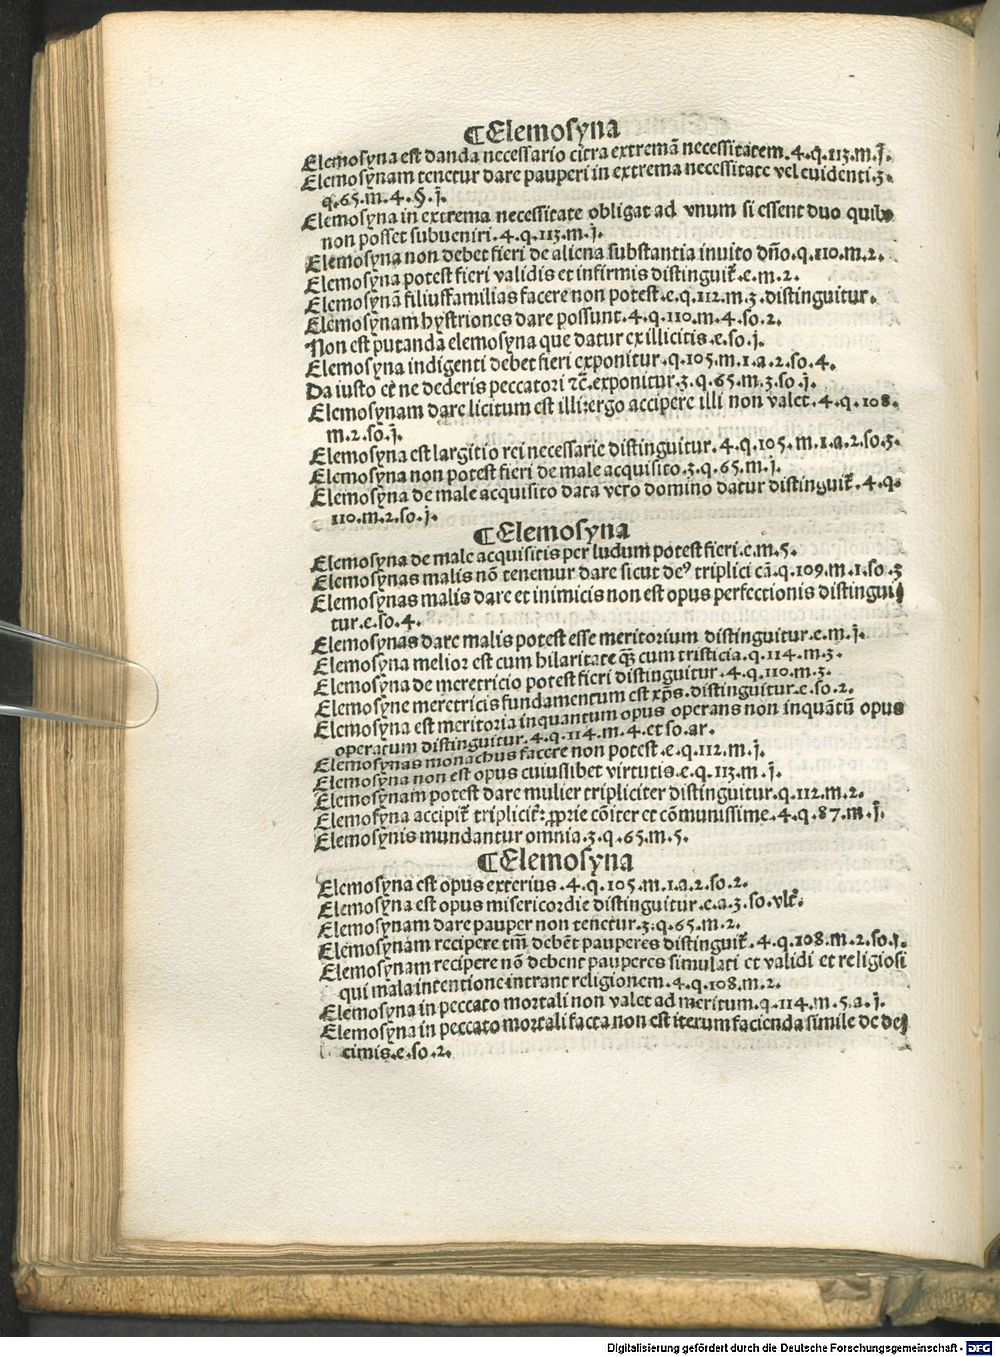 ¶Elemosyna
Elemosyna est danda necessario citra extremā necessitatem.4.q.113.m.j.
Elemosynam tenetur dare pauperi in extrema necessitate vel euidenti.3.
q.65.m.4.§.j.
Elemosyna in extrema necessitate obligat ad vnum si essent duo quibꝰ
non posset subueniri.4.q.113.m.j.
Elemosyna non debet fieri de aliena substantia inuito dño.q.110.m.2.
Elemosyna potest fieri validis et infirmis distinguit̄.e.m.2.
Elemosynā filiusfamilias facere non potest.e.q.112.m.3.distinguitur.
Elemosynam hystriones dare possunt.4.q.110.m.4.so.2.
Non est putanda elemosyna que datur ex illicitis.e.so.j.
Elemosyna indigenti debet fieri exponitur.q.105.m.1.a.2.so.4.
Da iusto et ne dederis peccatori ⁊c̄.exponitur.3.q.65.m.3.so.j.
Elemosynam dare licitum est illi:ergo accipere illi non valet.4.q.108.
m.2.so.j.
Elemosyna est largitio rei necessarie distinguitur.4.q.105.m.1.a.2.so.3.
Elemosyna non potest fieri de male acquisito.3.q.65.m.j.
Elemosyna de male acquisito data vero domino datur distinguit̄.4.q.
110.m.2.so.j.
¶Elemosyna
Elemosyna de male acquisitis per ludum potest fieri.e.m.5.
Elemosynas malis nō tenemur dare sicut deꝰ triplici cā.q.109.m.1.so.3
Elemosynas malis dare et inimicis non est opus perfectionis distingui
tur.e.so.4.
Elemosynas dare malis potest esse meritorium distinguitur.e.m.j.
Elemosyna melior est cum hilaritate q̄ȝ cum tristicia.q.114.m.3.
Elemosyna de meretricio potest fieri distinguitur.4.q.110.m.3.
Elemosyne meretricis fundamentum est xp̄s.distinguitur.e.so.2.
Elemosyna est meritoria inquantum opus operans non inquātū opus
operatum distinguitur.4.q.114.m.4.et so.ar.
Elemosynas monachus facere non potest.e.q.112.m.j.
Elemosyna non est opus cuiuslibet virtutis.e.q.113.m.j.
Elemosynam potest dare mulier tripliciter distinguitur.q.112.m.2.
Elemosyna accipit̄ triplicit̄:ꝓprie cōiter et cōmunissime.4.q.87.m.j.
Elemosynis mundantur omnia.3.q.65.m.5.
¶Elemosyna
Elemosyna est opus exterius.4.q.105.m.1.a.2.so.2.
Elemosyna est opus misericordie distinguitur.e.a.3.so.vlt̄.
Elemosynam dare pauper non tenetur.3.q.65.m.2.
Elemosynam recipere tm̄ debēt pauperes distinguit̄.4.q.108.m.2.so.j.
Elemosynam recipere nō debent pauperes simulati et validi et religiosi
qui mala intentione intrant religionem.4.q.108.m.2.
Elemosyna in peccato mortali non valet ad meritum.q.114.m.5.a.j.
Elemosyna in peccato mortali facta non est iterum facienda simile de de
cimis.e.so.2.
Digitalisierung gefördert durch die Deutsche Forschungsgemeinschaft - DFG